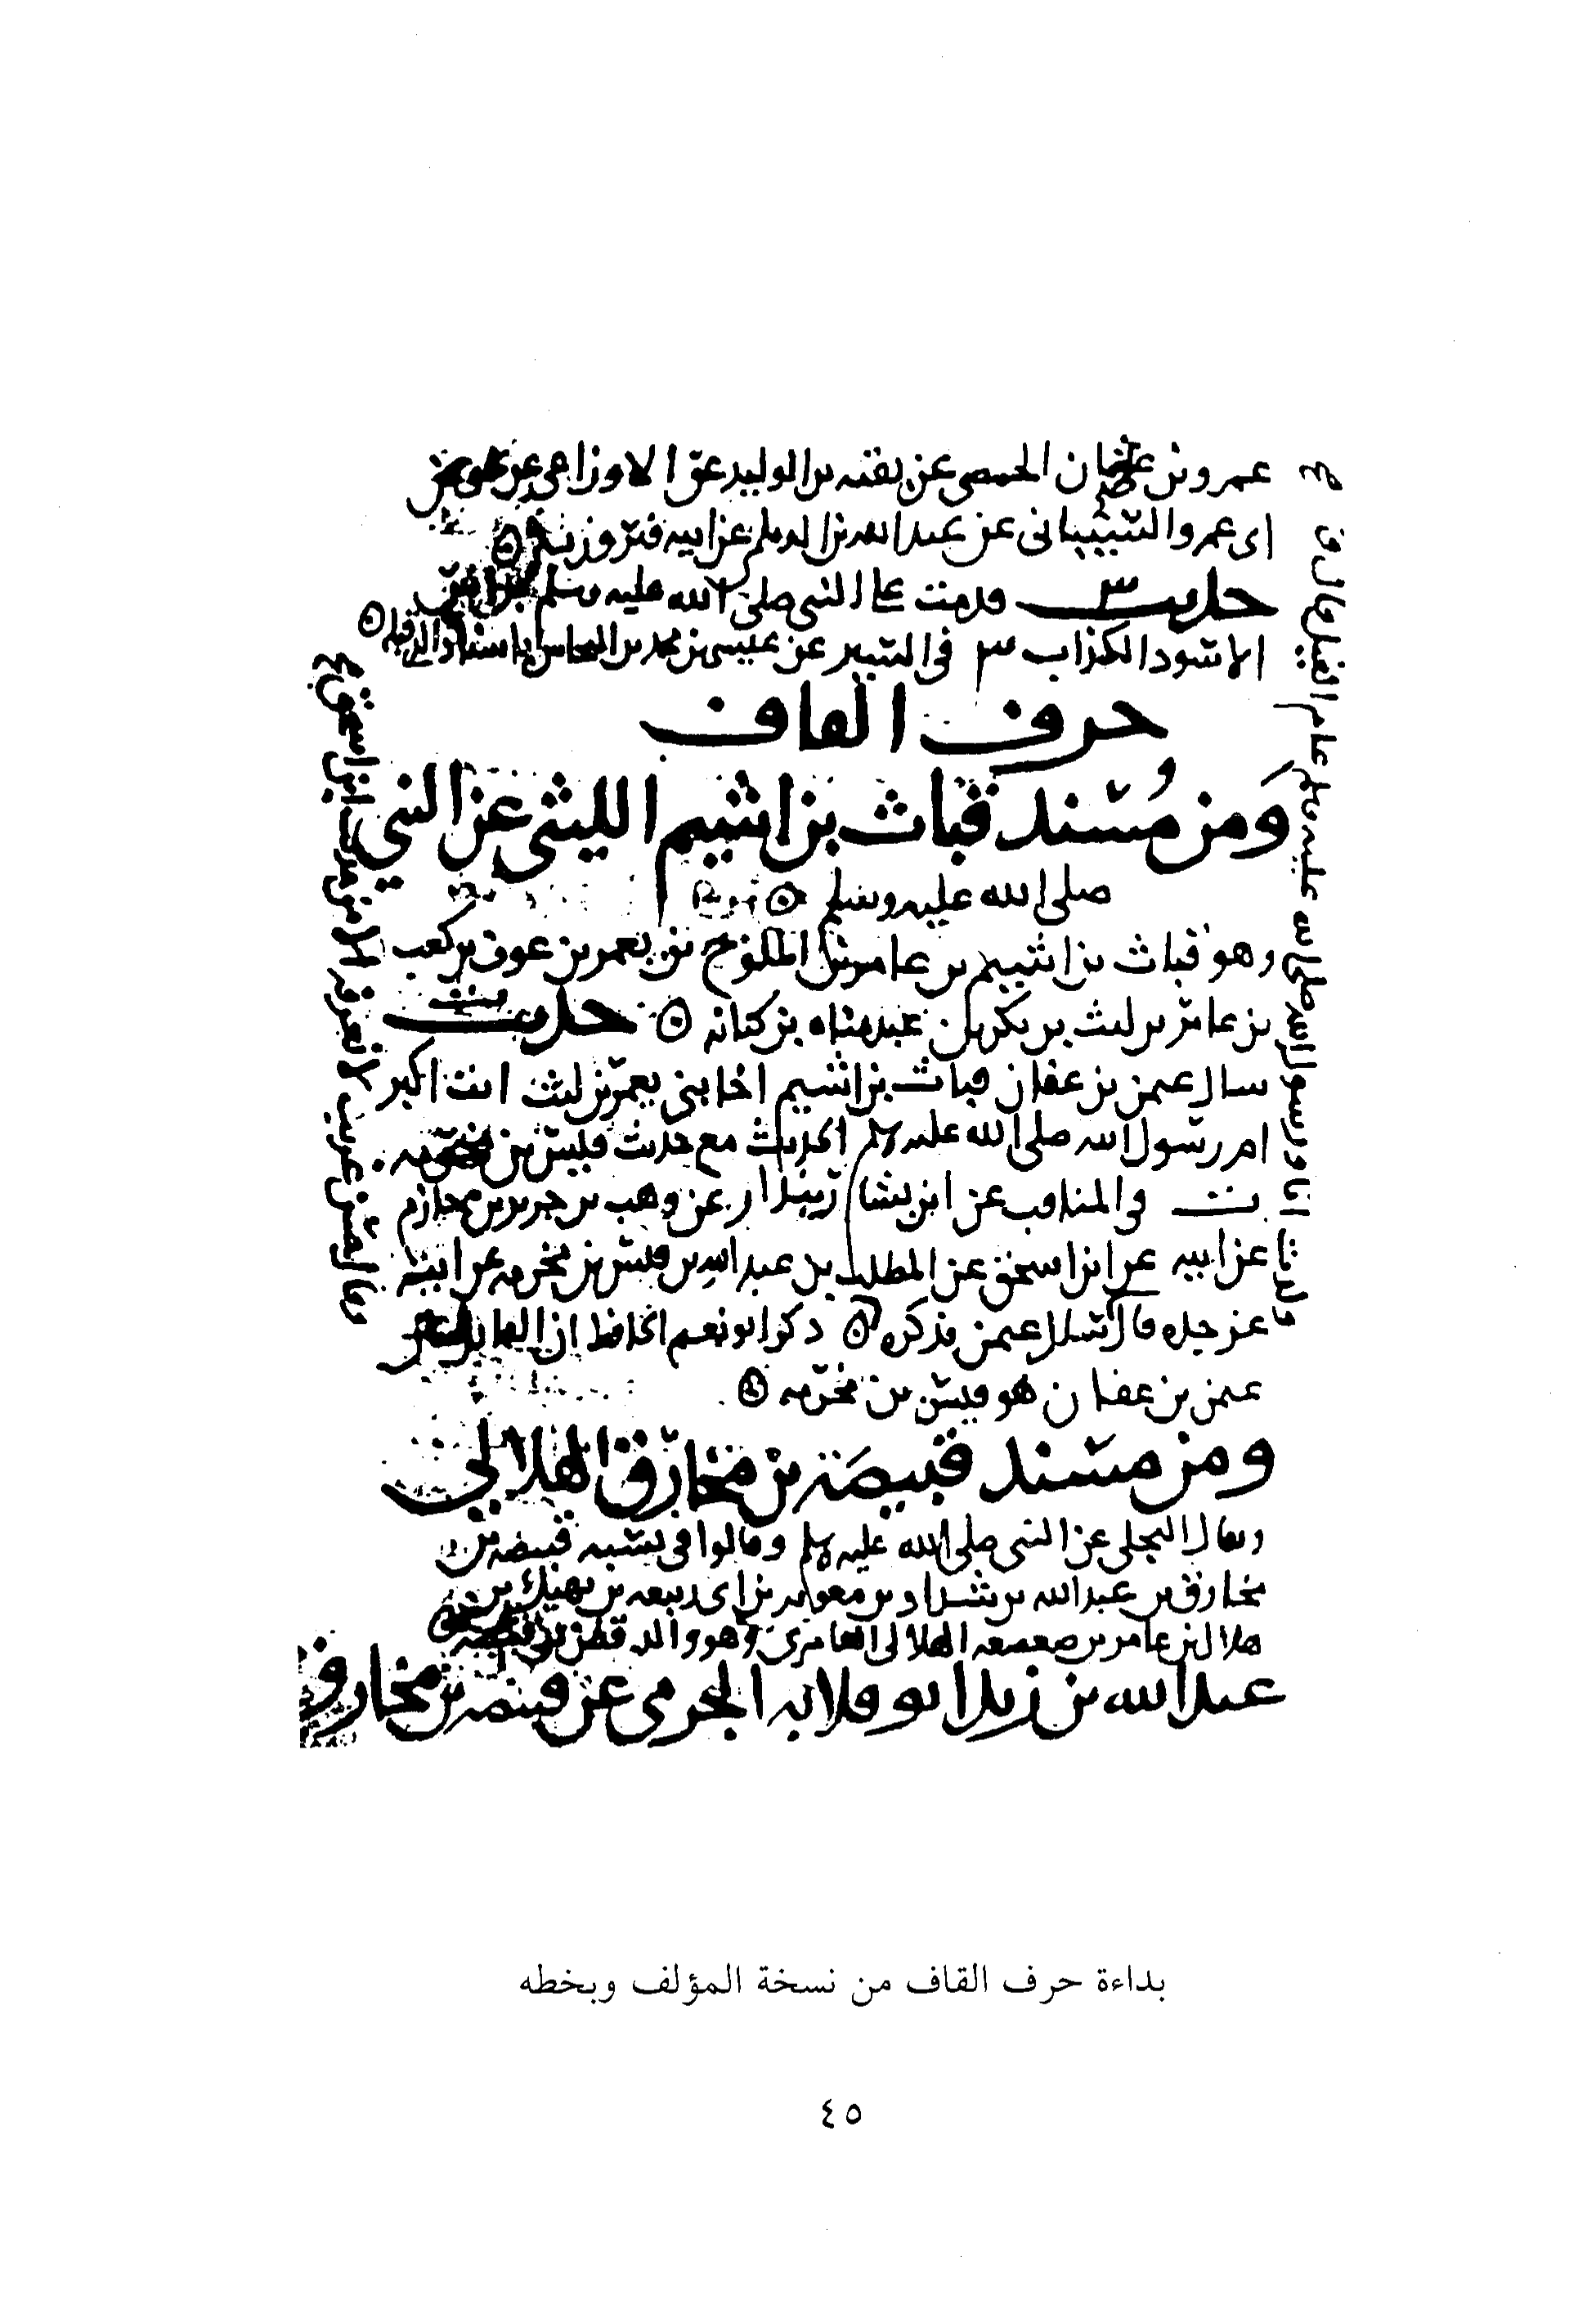 عمرو بن عثمان الحمصي عن بقية بن الوليد عن الاوزاعي عن يحيى بن
ابي عمرو الشيباني عن عبد الله بن الديلمي عن ابيه فيروز
حديث س قدمت على النبي صلى الله عليه وسلم براس
الاسود الكذاب س في السير عن عيسى بن محمد بن النحاس باسناد الذي قبله
حرف القاف
ومن مسند قباث بن اشيم الليثي عن النبي
صلى الله عليه وسلم
وهو قباث بن اشيم بن عامر بن الملوح بن يعمر بن عوف بن كعب
بن عامر بن ليث بن بكر بن عبد مناه بن كنانه حديث ت
سال عثمن بن عفان قباث بن اشيم اخا بني يعمر بن ليث انت اكبر
ام رسول الله صلى الله عليه وسلم الحديث مع حديث قيس بن مخرمه
ت في المناقب عن ابن بشار بندار عن وهب بن جرير بن حازم
عن ابيه عن ابن اسحق عن المطلب بن عبد الله بن قيس بن مخرمه عن ابيه
عن جده قال سال عثمن فذكره ذكر ابو نعيم الحافظ ان القايل
عثمن بن عفان هو قيس بن مخرمه
ومن مسند قبيصة بن مخارق الهلالي
ويقال البجلي عن النبي صلى الله عليه وسلم وقالوا في نسبه قبيصه بن
مخارق بن عبد الله بن شداد بن معويه بن ابي ربيعه بن نهيك بن
هلال بن عامر بن صعصعه الهلالي العامري وهو والد قطن بن قبيصه
عبد الله بن زيد ابو قلابه الجرمي عن قبيصه بن مخارق
قال ولدت انا ورسول الله صلى الله عليه وسلم عام الفيل قال
وقال حسن غريب لا نعرفه الا من حديث ابن اسحق
بداءة حرف القاف من نسخة المؤلف وبخطه
٤٥